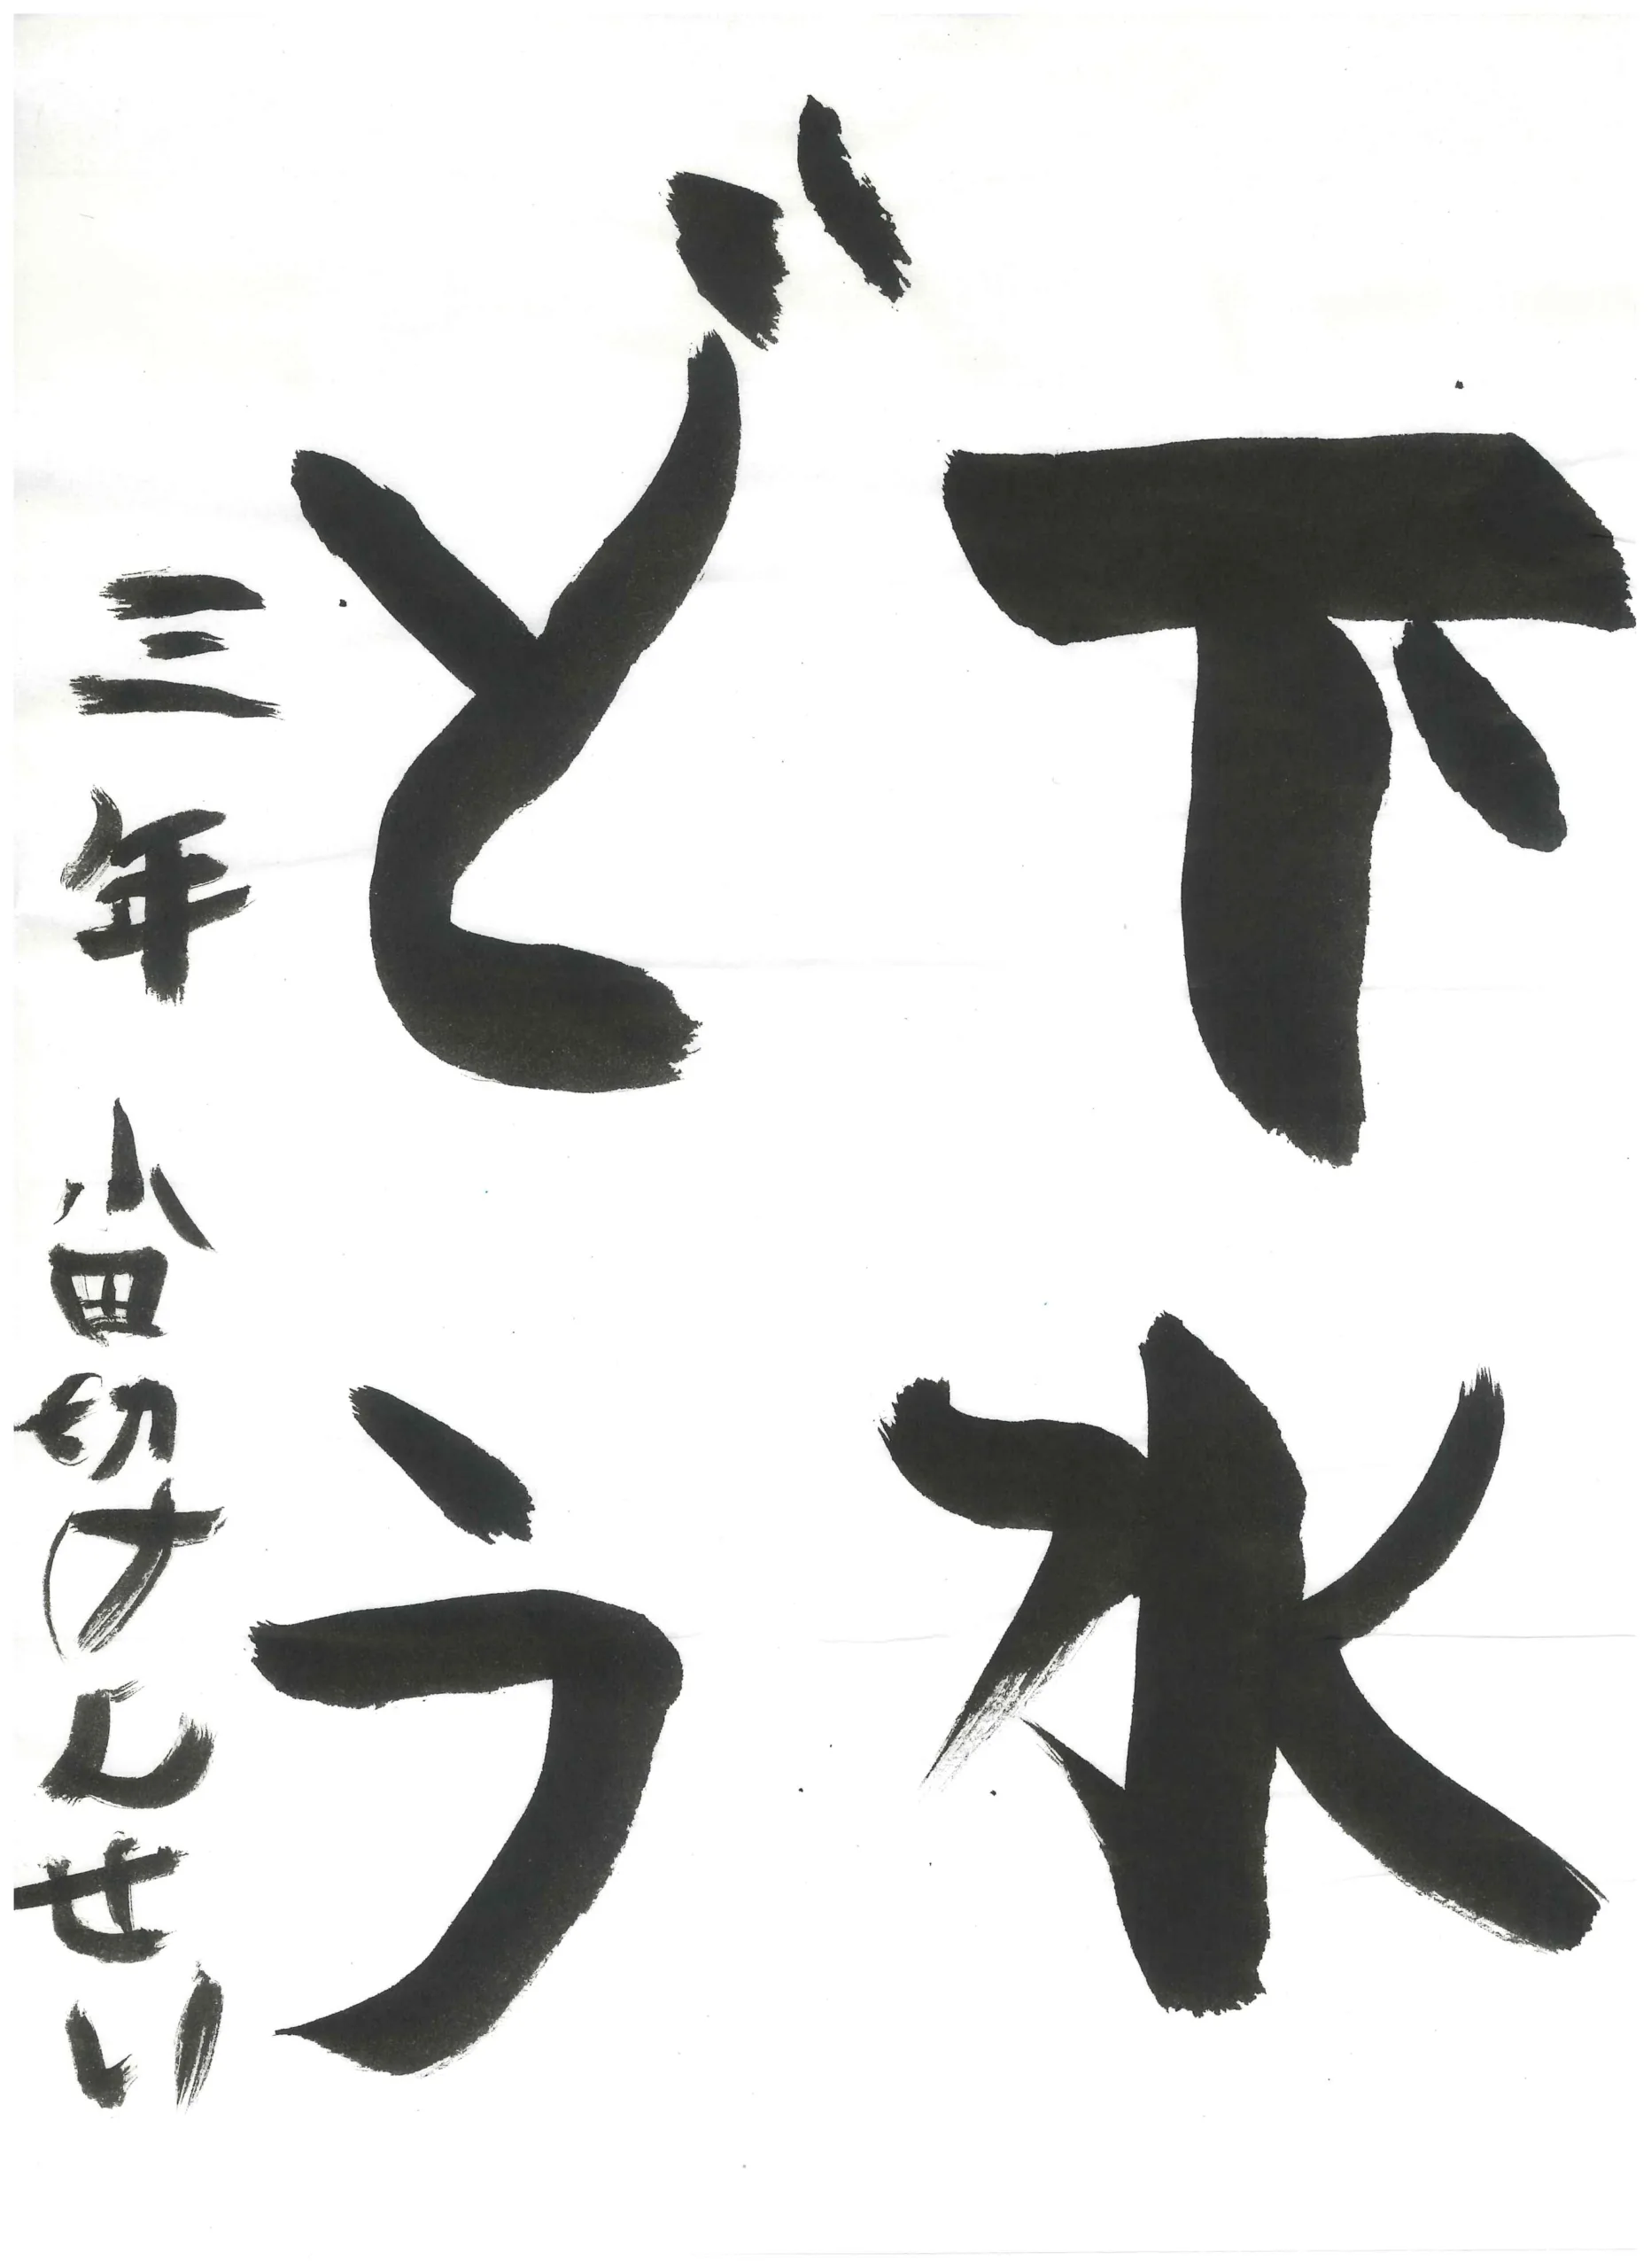 下水
どう
三年 小田切けんせい